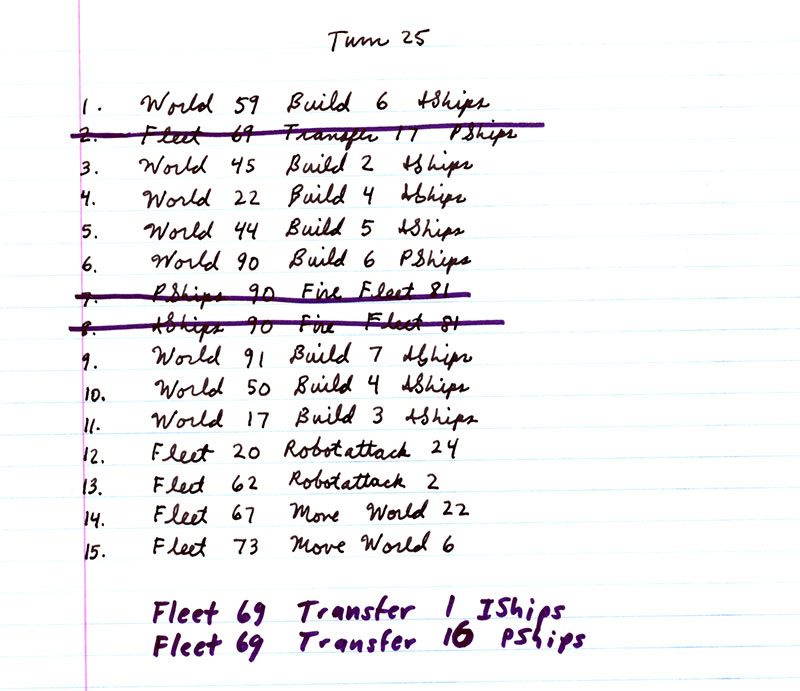 Turn 25
1. World 59 Build 6 IShips
2. Fleet 69 Transfer 17 PShips
3. World 45 Build 2 IShips
4. World 22 Build 4 IShips
5. World 44 Build 5 IShips
6. World 90 Build 6 PShips
7. PShips 90 Fire Fleet 81
8. IShips 90 Fire Fleet 81
9. World 91 Build 7 IShips
10. World 50 Build 4 IShips
11. World 17 Build 3 IShips
12. Fleet 20 Robotattack 24
13. Fleet 62 Robotattack 2
14. Fleet 67 Move World 22
15. Fleet 73 Move World 6
Fleet 69 Transfer 1 IShips
Fleet 69 Transfer 16 PShips